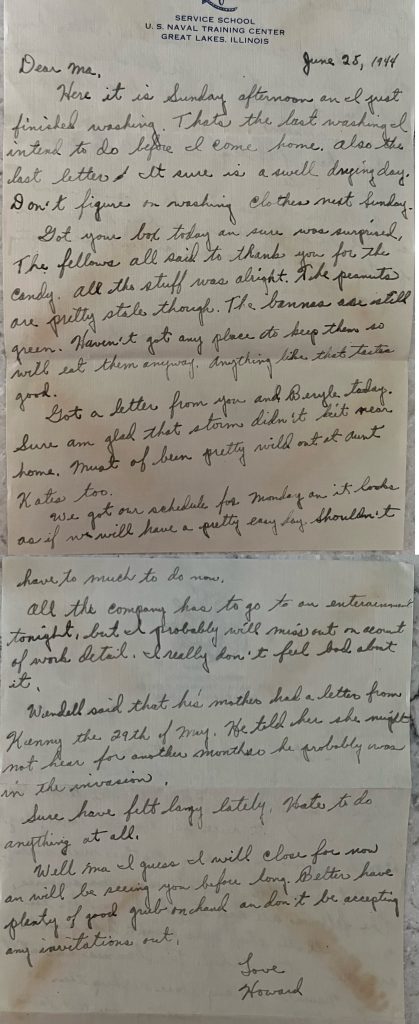 SERVICE SCHOOL
U. S. NAVAL TRAINING CENTER
GREAT LAKES, ILLINOIS
June 25, 1944
Dear Ma,
Here it is Sunday afternoon an I just
finished washing. Thats the last washing I
intend to do before I come home. Also the
last letter. It sure is a swell drying day.
Don't figure on washing clothes next Sunday.
Got your box today an sure was surprised.
The fellows all said to thank you for the
candy. All the stuff was alright. The peanuts
are pretty stale though. The bannas are still
green. Haven't got any place to keep them so
will eat them anyway. Anything like that tastes
good.
Got a letter from you and Beryle today.
Sure am glad that storm didn't hit near
home. Must of been pretty wild out at Aunt
Katis too.
We got our schedule for Monday an it looks
as if we will have a pretty easy day. Shouldn't
have to much to do now.
All the company has to go to an entertainment
tonight, but I probably will miss out on acount
of work detail. I really don't feel bad about
it.
Wendall said that his mother had a letter from
Kenny the 29th of May. He told her she might
not hear for another months he probably was
in the invasion.
Sure have felt lazy lately. Hate to do
anything at all.
Well Ma I guess I will close for now
an will be seeing you before long. Better have
plenty of good grub on hand an don't be accepting
any invitations out.
Love
Howard